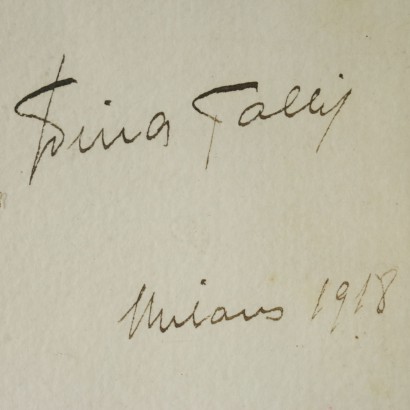 Dina Galli
Milano 1918